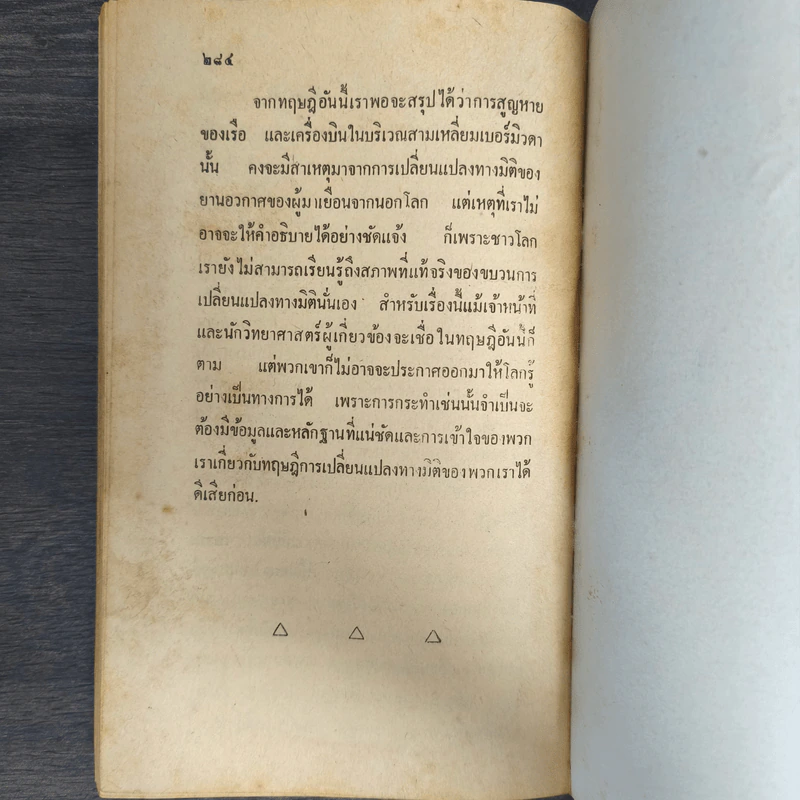 ๒๘๔
จากทฤษฎีอันนี้เราพอจะสรุปได้ว่าการสูญหาย
ของเรือ และเครื่องบินในบริเวณสามเหลี่ยมเบอร์มิวดา
นั้น คงจะมีสาเหตุมาจากการเปลี่ยนแปลงทางมิติของ
ยานอวกาศของผู้มาเยือนจากนอกโลก แต่เหตุที่เราไม่
อาจจะให้คำอธิบายได้อย่างชัดแจ้ง ก็เพราะชาวโลก
เรายังไม่สามารถเรียนรู้ถึงสภาพที่แท้จริงของขบวนการ
เปลี่ยนแปลงทางมิตินั่นเอง สำหรับเรื่องนี้แม้เจ้าหน้าที่
และนักวิทยาศาสตร์ผู้เกี่ยวข้องจะเชื่อในทฤษฎีอันนี้ก็
ตาม แต่พวกเขาก็ไม่อาจจะประกาศออกมาให้โลกรู้
อย่างเป็นทางการได้ เพราะการกระทำเช่นนั้นจำเป็นจะ
ต้องมีข้อมูลและหลักฐานที่แน่ชัดและการเข้าใจของพวก
เราเกี่ยวกับทฤษฎีการเปลี่ยนแปลงทางมิติของพวกเราได้
ดีเสียก่อน.